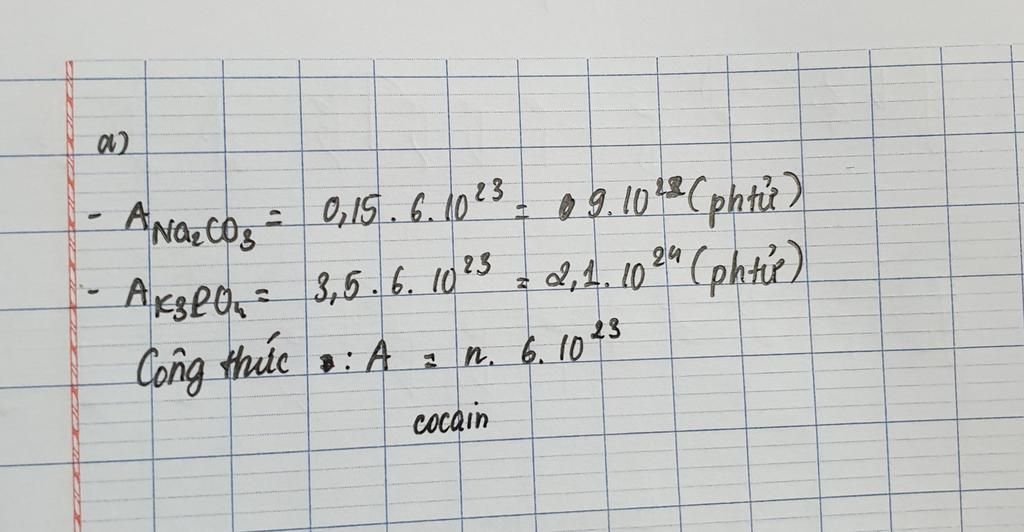 a)
- A_Na₂CO₃ = 0,15 . 6. 10²³ = 9. 10²² (phtử)
- A_K₃PO₄ = 3,5 . 6. 10²³ = 2,1. 10²⁴ (phtử)
Công thức : A = n. 6. 10²³
cocain